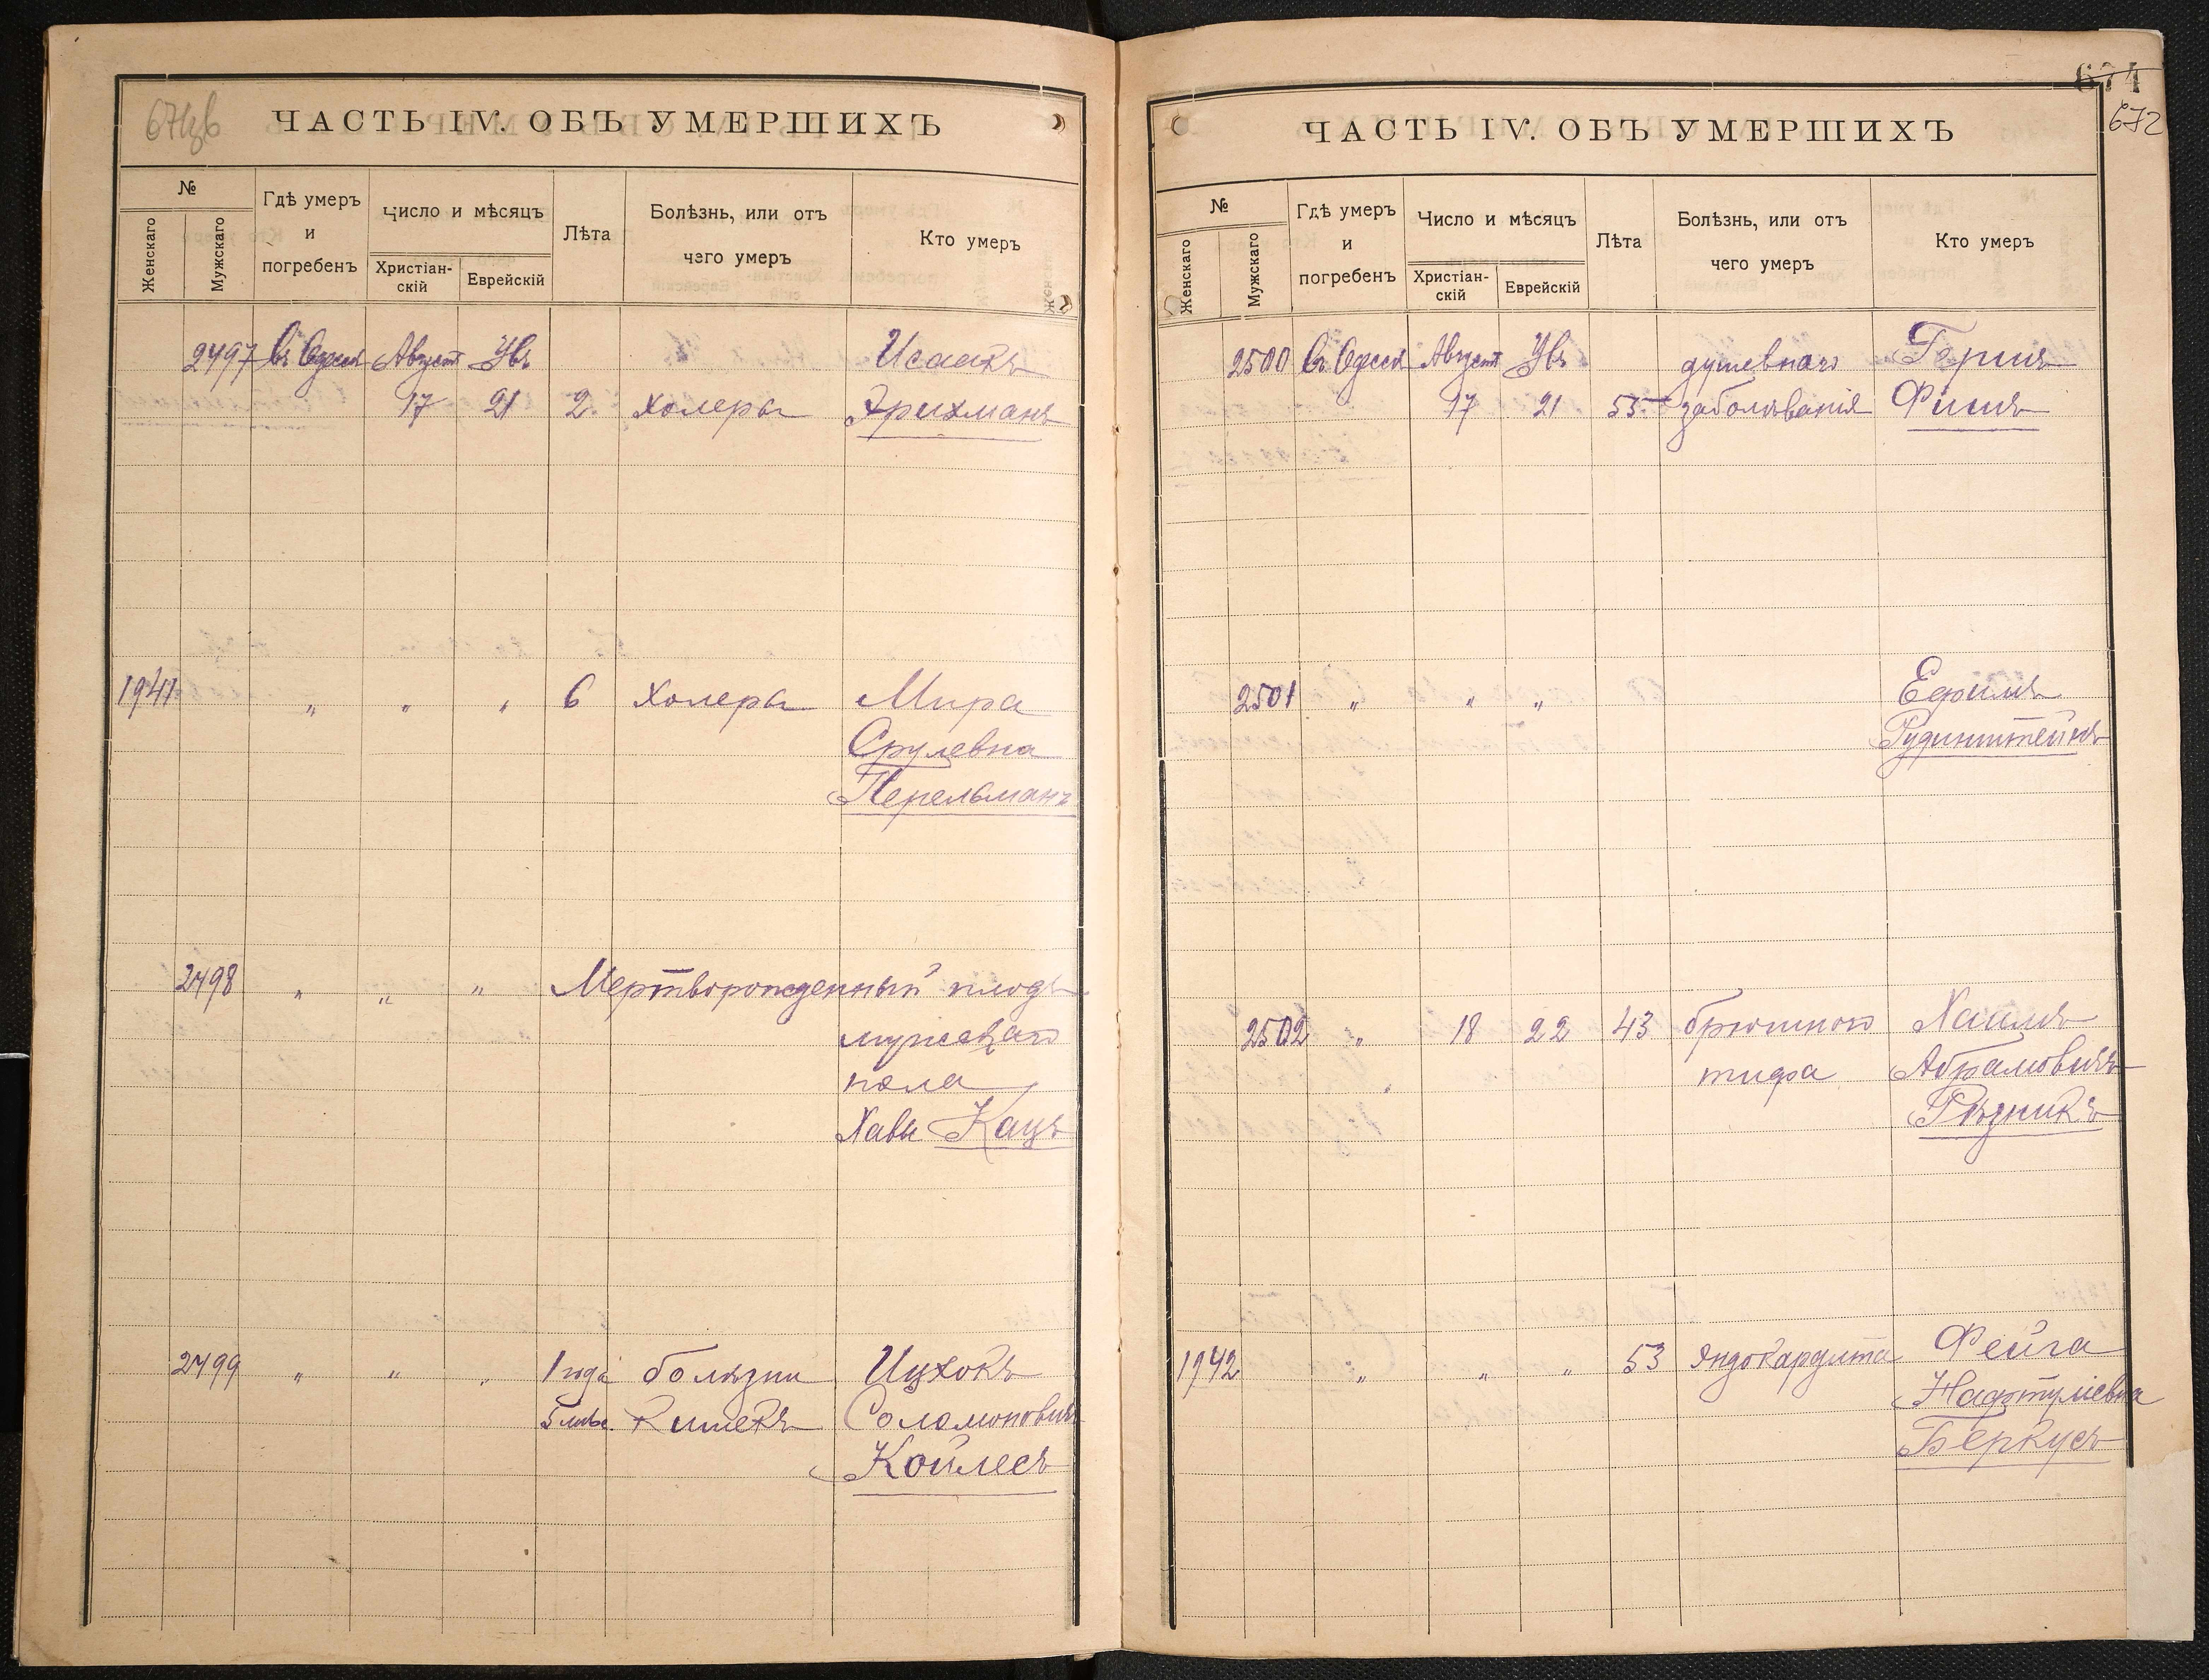 ЧАСТЬ IV. ОБЪ УМЕРШИХЪ
№
Женскаго
Мужскаго
Гдѣ умеръ и погребенъ
Число и мѣсяцъ
Христіан-скій
Еврейскій
Лѣта
Болѣзнь, или отъ чего умеръ
Кто умеръ
2497 Въ Одессѣ Августъ Увъ Исаакъ
17 21 2 холеры Эрихманъ
1941 " " " 6 холеры Мира
Срулевна
Перельманъ
2498 " " " Мертворожденный плодъ
мужскаго
пола
Хавы Кацъ
2499 " " " 1 года болѣзни Ицхокъ
5 мѣс. кишекъ Соломоновичъ
Койлесъ
674
672
ЧАСТЬ IV. ОБЪ УМЕРШИХЪ
№
Женскаго
Мужскаго
Гдѣ умеръ и погребенъ
Число и мѣсяцъ
Христіан-скій
Еврейскій
Лѣта
Болѣзнь, или отъ чего умеръ
Кто умеръ
2500 Въ Одессѣ Августъ Увъ душевнаго Гершъ
17 21 55 заболѣванія Фишъ
2501 " " " Ефимъ
Рудинштейнъ
2502 " 18 22 43 брюшного Хаимъ
тифа Абрамовичъ
Рѣзникъ
1942 " " " 53 эндокардита Фейга
Нафтуліевна
Беркусъ